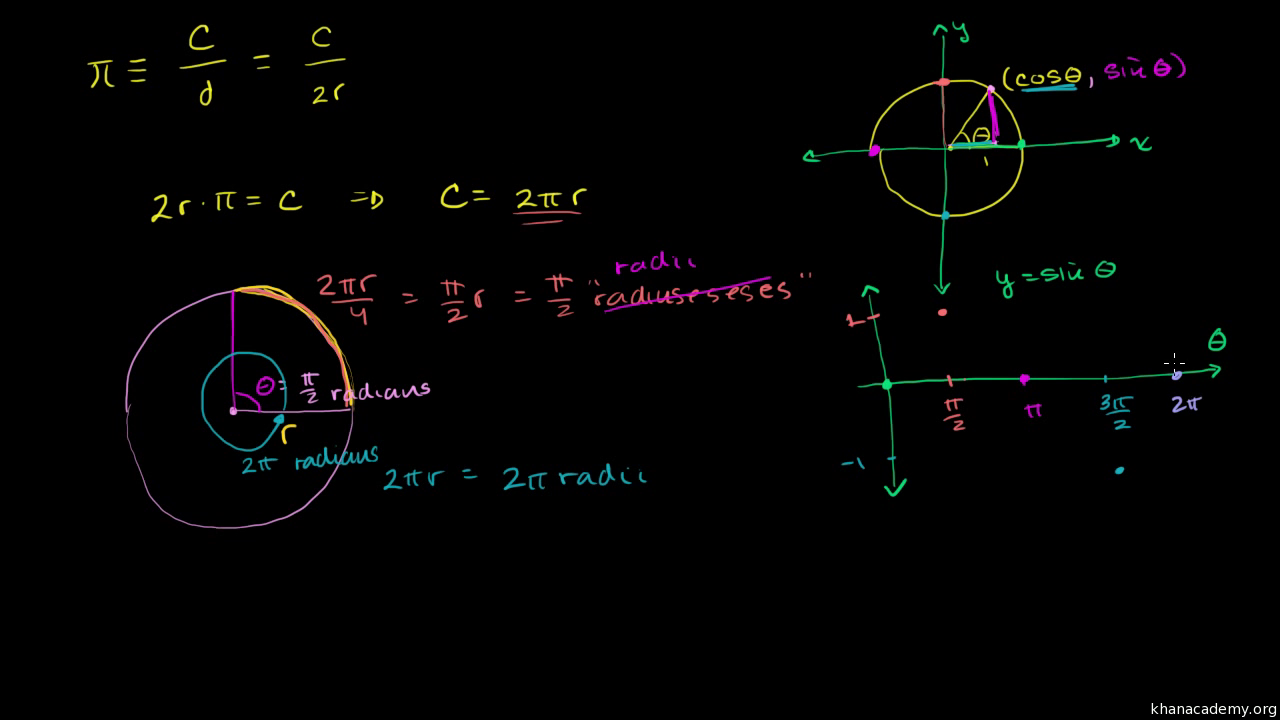 π ≡ C/d = C/2r
2r · π = C ⇒ C = 2πr
2πr/4 = π/2 r = π/2 "radiuseseses"
radii
θ = π/2 radians
r
2π radians
2πr = 2π radii
y
(cosθ, sinθ)
θ
1
x
y = sin θ
1
θ
π/2 π 3π/2 2π
-1
khanacademy.org